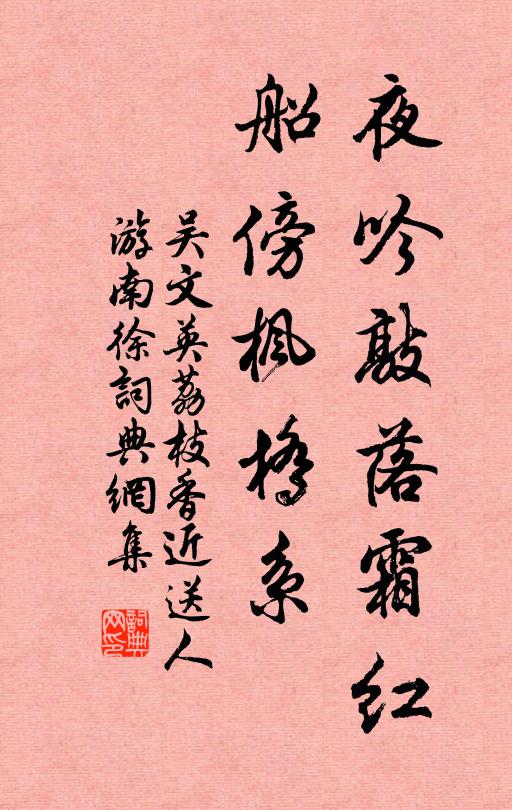 夜吟敲落霜红
船傍枫桥系
吴文英荔枝香近送人
游南徐詞典網集
詞典
网印